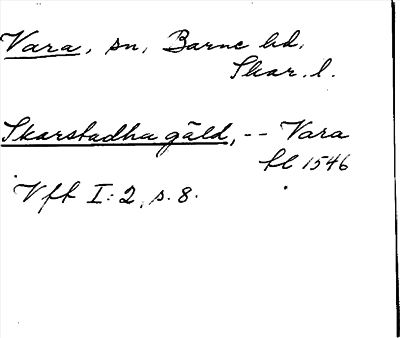 Vara, sn, Barne hd,
Skar. l.
Skarstadha gäld, -- Vara
fl 1546
Vft I:2, s. 8.